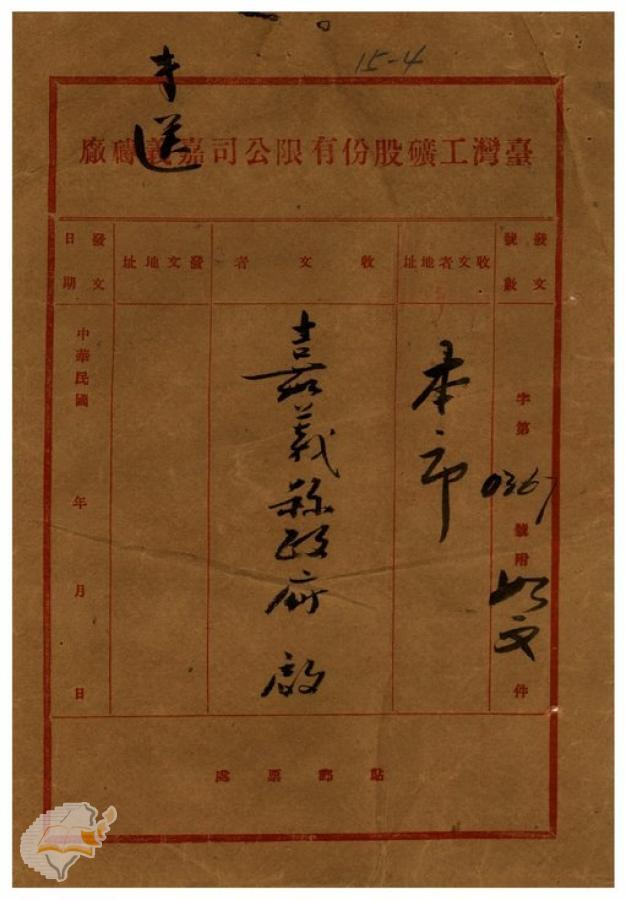 15-4
專送
臺灣工礦股份有限公司嘉義廠
發文號數
字第0367號附如文件
收文者地址
本市
收文者
嘉義縣政府 啟
發文地址
發文日期
中華民國 年 月 日
貼郵票處